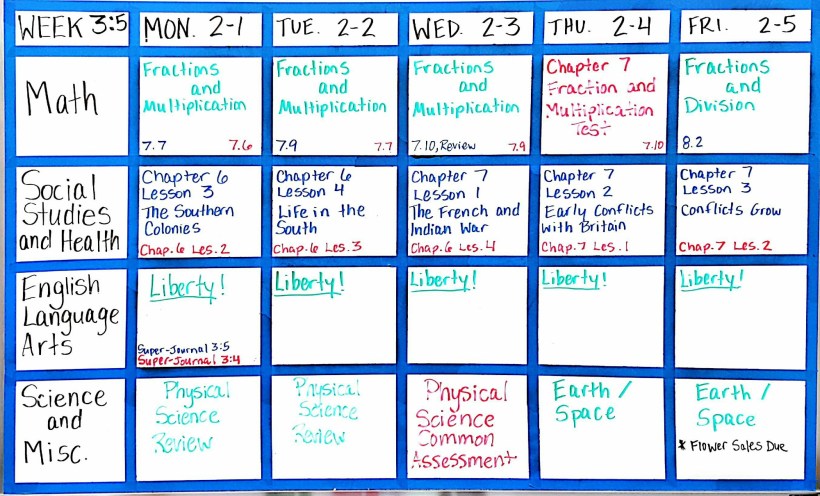 WEEK 3:5
MON. 2-1
TUE. 2-2
WED. 2-3
THU. 2-4
FRI. 2-5
Math
Fractions
and
Multiplication
7.7 7.6
Fractions
and
Multiplication
7.9 7.7
Fractions
and
Multiplication
7.10, Review 7.9
Chapter 7
Fraction and
Multiplication
Test
7.10
Fractions
and
Division
8.2
Social
Studies
and Health
Chapter 6
Lesson 3
The Southern
Colonies
Chap. 6 Les. 2
Chapter 6
Lesson 4
Life in the
South
Chap. 6 Les. 3
Chapter 7
Lesson 1
The French and
Indian War
Chap. 6 Les. 4
Chapter 7
Lesson 2
Early Conflicts
with Britain
Chap. 7 Les. 1
Chapter 7
Lesson 3
Conflicts Grow
Chap. 7 Les. 2
English
Language
Arts
Liberty!
Super-Journal 3:5
Super-Journal 3:4
Liberty!
Liberty!
Liberty!
Liberty!
Science
and
Misc.
Physical
Science
Review
Physical
Science
Review
Physical
Science
Common
Assessment
Earth /
Space
Earth /
Space
* Flower Sales Due